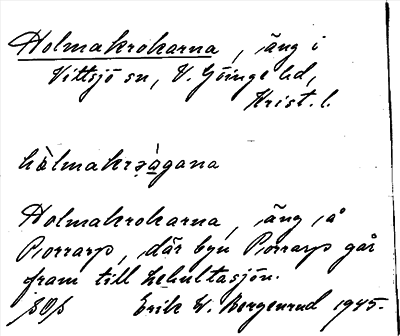 Holmakrokarna, äng i
Vittsjö sn, V. Göinge hd,
Krist. l.
hòlmakrəàgana
Holmakrokarna, äng å
Porrarp, där byn Porrarp går
fram till Lehultasjön.
Erik W. Bergenrud 1945.